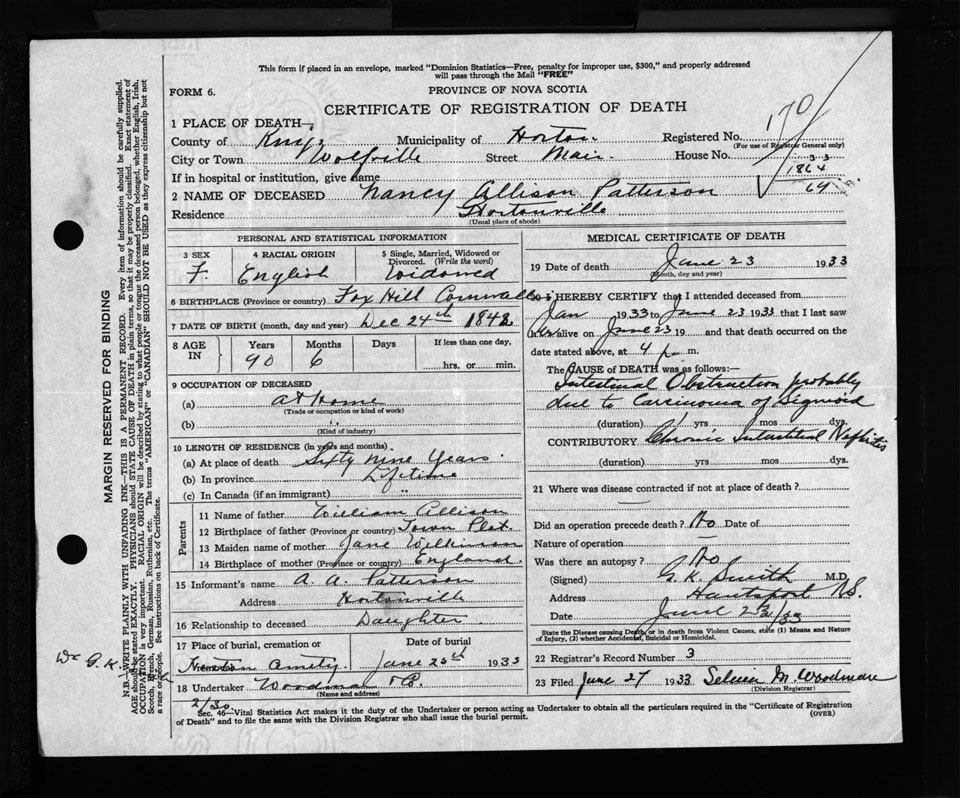 This form if placed in an envelope, marked "Dominion Statistics—Free, penalty for improper use, $300," and properly addressed
will pass through the Mail "FREE"
FORM 6.
PROVINCE OF NOVA SCOTIA
CERTIFICATE OF REGISTRATION OF DEATH
170
1 PLACE OF DEATH—
County of Kings Municipality of Horton Registered No.
(For use of Registrar General only)
City or Town Wolfville Street Main House No.
If in hospital or institution, give name
1864
69
2 NAME OF DECEASED Nancy Allison Patterson
Residence Hortonville
(Usual place of abode)
PERSONAL AND STATISTICAL INFORMATION
3 SEX 4 RACIAL ORIGIN 5 Single, Married, Widowed or Divorced. (Write the word)
F. English Widowed
6 BIRTHPLACE (Province or country) Fox Hill Cornwallis
7 DATE OF BIRTH (month, day and year) Dec 24th 1842
8 AGE IN Years Months Days If less than one day,
90 6 hrs. or min.
9 OCCUPATION OF DECEASED
(a) at Home
(Trade or occupation or kind of work)
(b) "
(Kind of industry)
10 LENGTH OF RESIDENCE (in years and months)
(a) At place of death Sixty nine Years
(b) In province Lifetime
(c) In Canada (if an immigrant) "
Parents
11 Name of father William Allison
12 Birthplace of father (Province or country) Town Plot
13 Maiden name of mother Jane Wilkinson
14 Birthplace of mother (Province or country) England
15 Informant's name A. A. Patterson
Address Hortonville
16 Relationship to deceased Daughter
17 Place of burial, cremation or Date of burial
June 25th 1933
18 Undertaker Woodman
(Name and address)
MEDICAL CERTIFICATE OF DEATH
19 Date of death June 23 1933
(Month, day and year)
20 I HEREBY CERTIFY that I attended deceased from
Jan 1933 to June 23 1933 that I last saw
her alive on June 23 19 and that death occurred on
date stated above, at 4 p. m.
The CAUSE of DEATH was as follows:—
Intestinal Obstruction probably
due to Carcinoma of Sigmoid
(duration) yrs mos dys.
CONTRIBUTORY Chronic Interstitial Nephritis
(duration) yrs mos dys.
21 Where was disease contracted if not at place of death?
Did an operation precede death? No Date of
Nature of operation —
Was there an autopsy? No
(Signed) G. K. Smith M.D.
Address Hantsport N.S.
Date June
State the Disease causing Death, or in death from Violent Causes, state (1) Means and Nature
of Injury, (2) whether Accidental, Suicidal or Homicidal.
22 Registrar's Record Number 3
23 Filed June 27 1933 M. Woodman
(Division Registrar)
2/30
Sec. 46—Vital Statistics Act makes it the duty of the Undertaker or person acting as Undertaker to obtain all the particulars required in the "Certificate of Registration
of Death" and to file the same with the Division Registrar who shall issue the burial permit. (OVER)
MARGIN RESERVED FOR BINDING
N.B.—WRITE PLAINLY WITH UNFADING INK—THIS IS A PERMANENT RECORD. Every item of information should be carefully supplied.
AGE should be stated EXACTLY. PHYSICIANS should STATE CAUSE OF DEATH in plain terms, so that it may be properly classified. Exact statement of
OCCUPATION is very important. RACIAL ORIGIN will be described by stating to what people or tongue the deceased person belonged, whether English, Irish,
Scotch, French, German, Russian, Ruthenian, etc. The terms "AMERICAN" or "CANADIAN" SHOULD NOT BE USED as they express citizenship but not
a race or people. See instructions on back of Certificate.
Dr G. K.